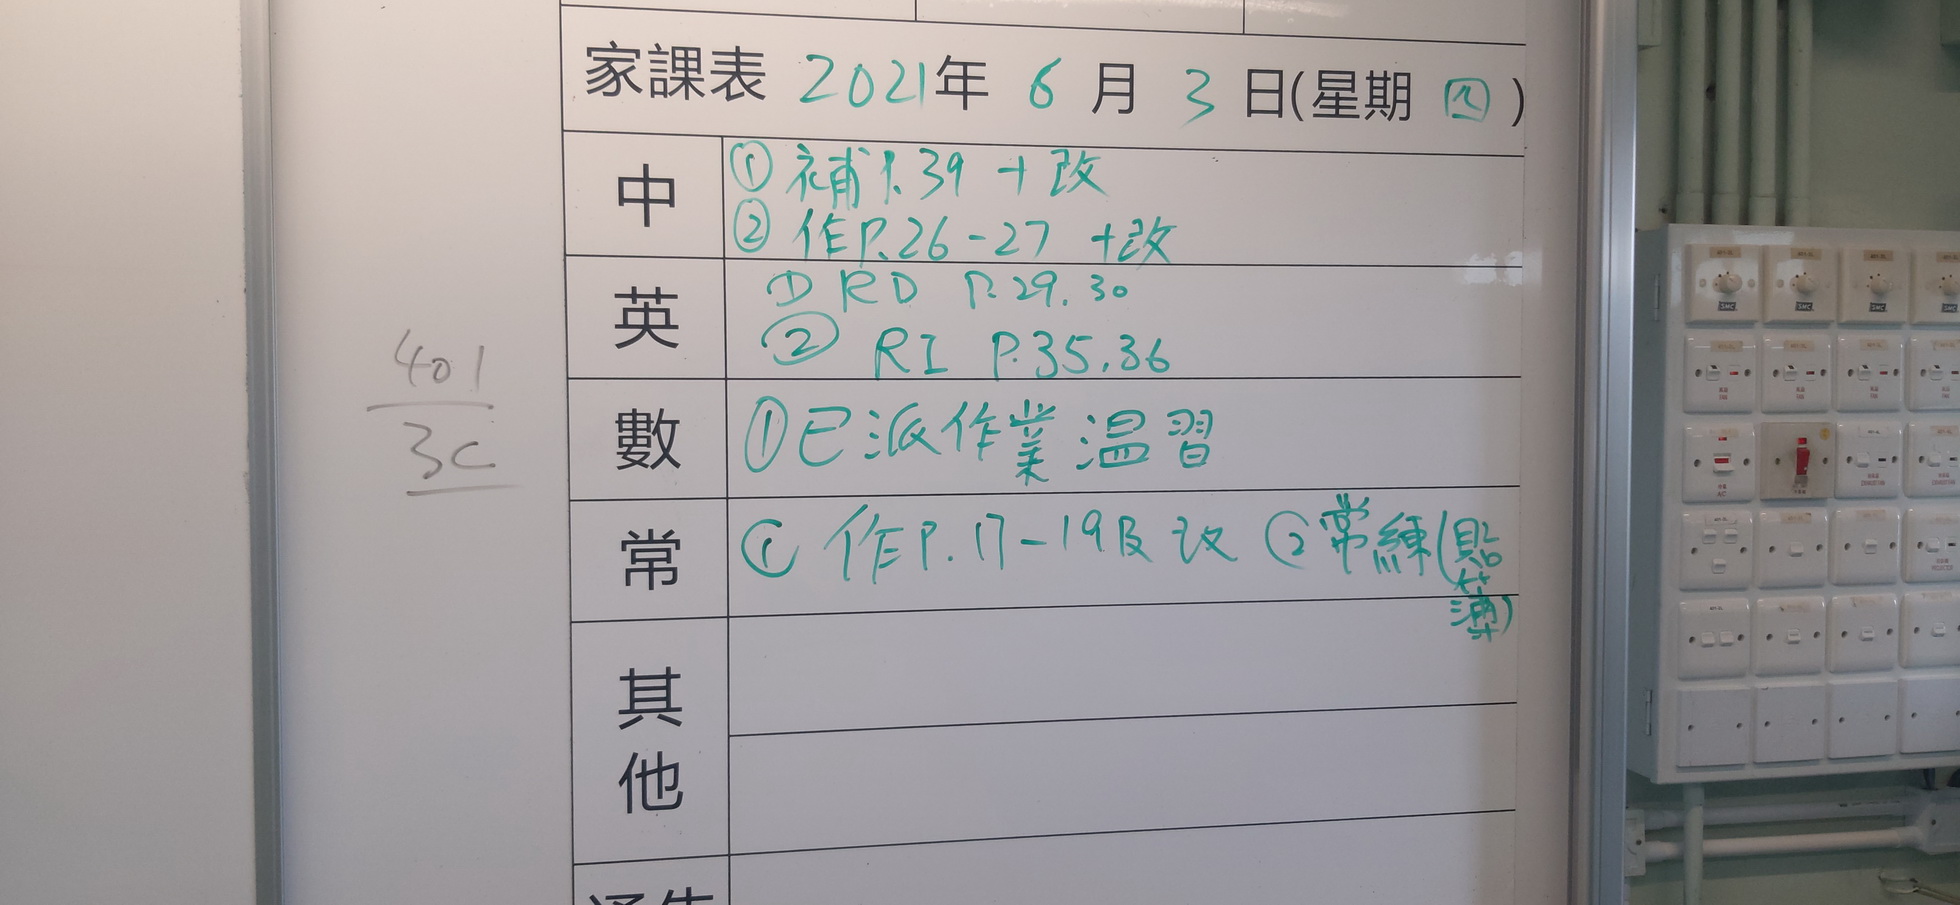 家課表 2021年 6 月 3 日(星期 四)
中
① 補P.39 +改
② 作P.26-27 +改
英
① RD P.29.30
② RI P.35.36
數
①已派作業溫習
常
① 作P.17-19及改 ②常練(貼
簿)
其
他
401
3C